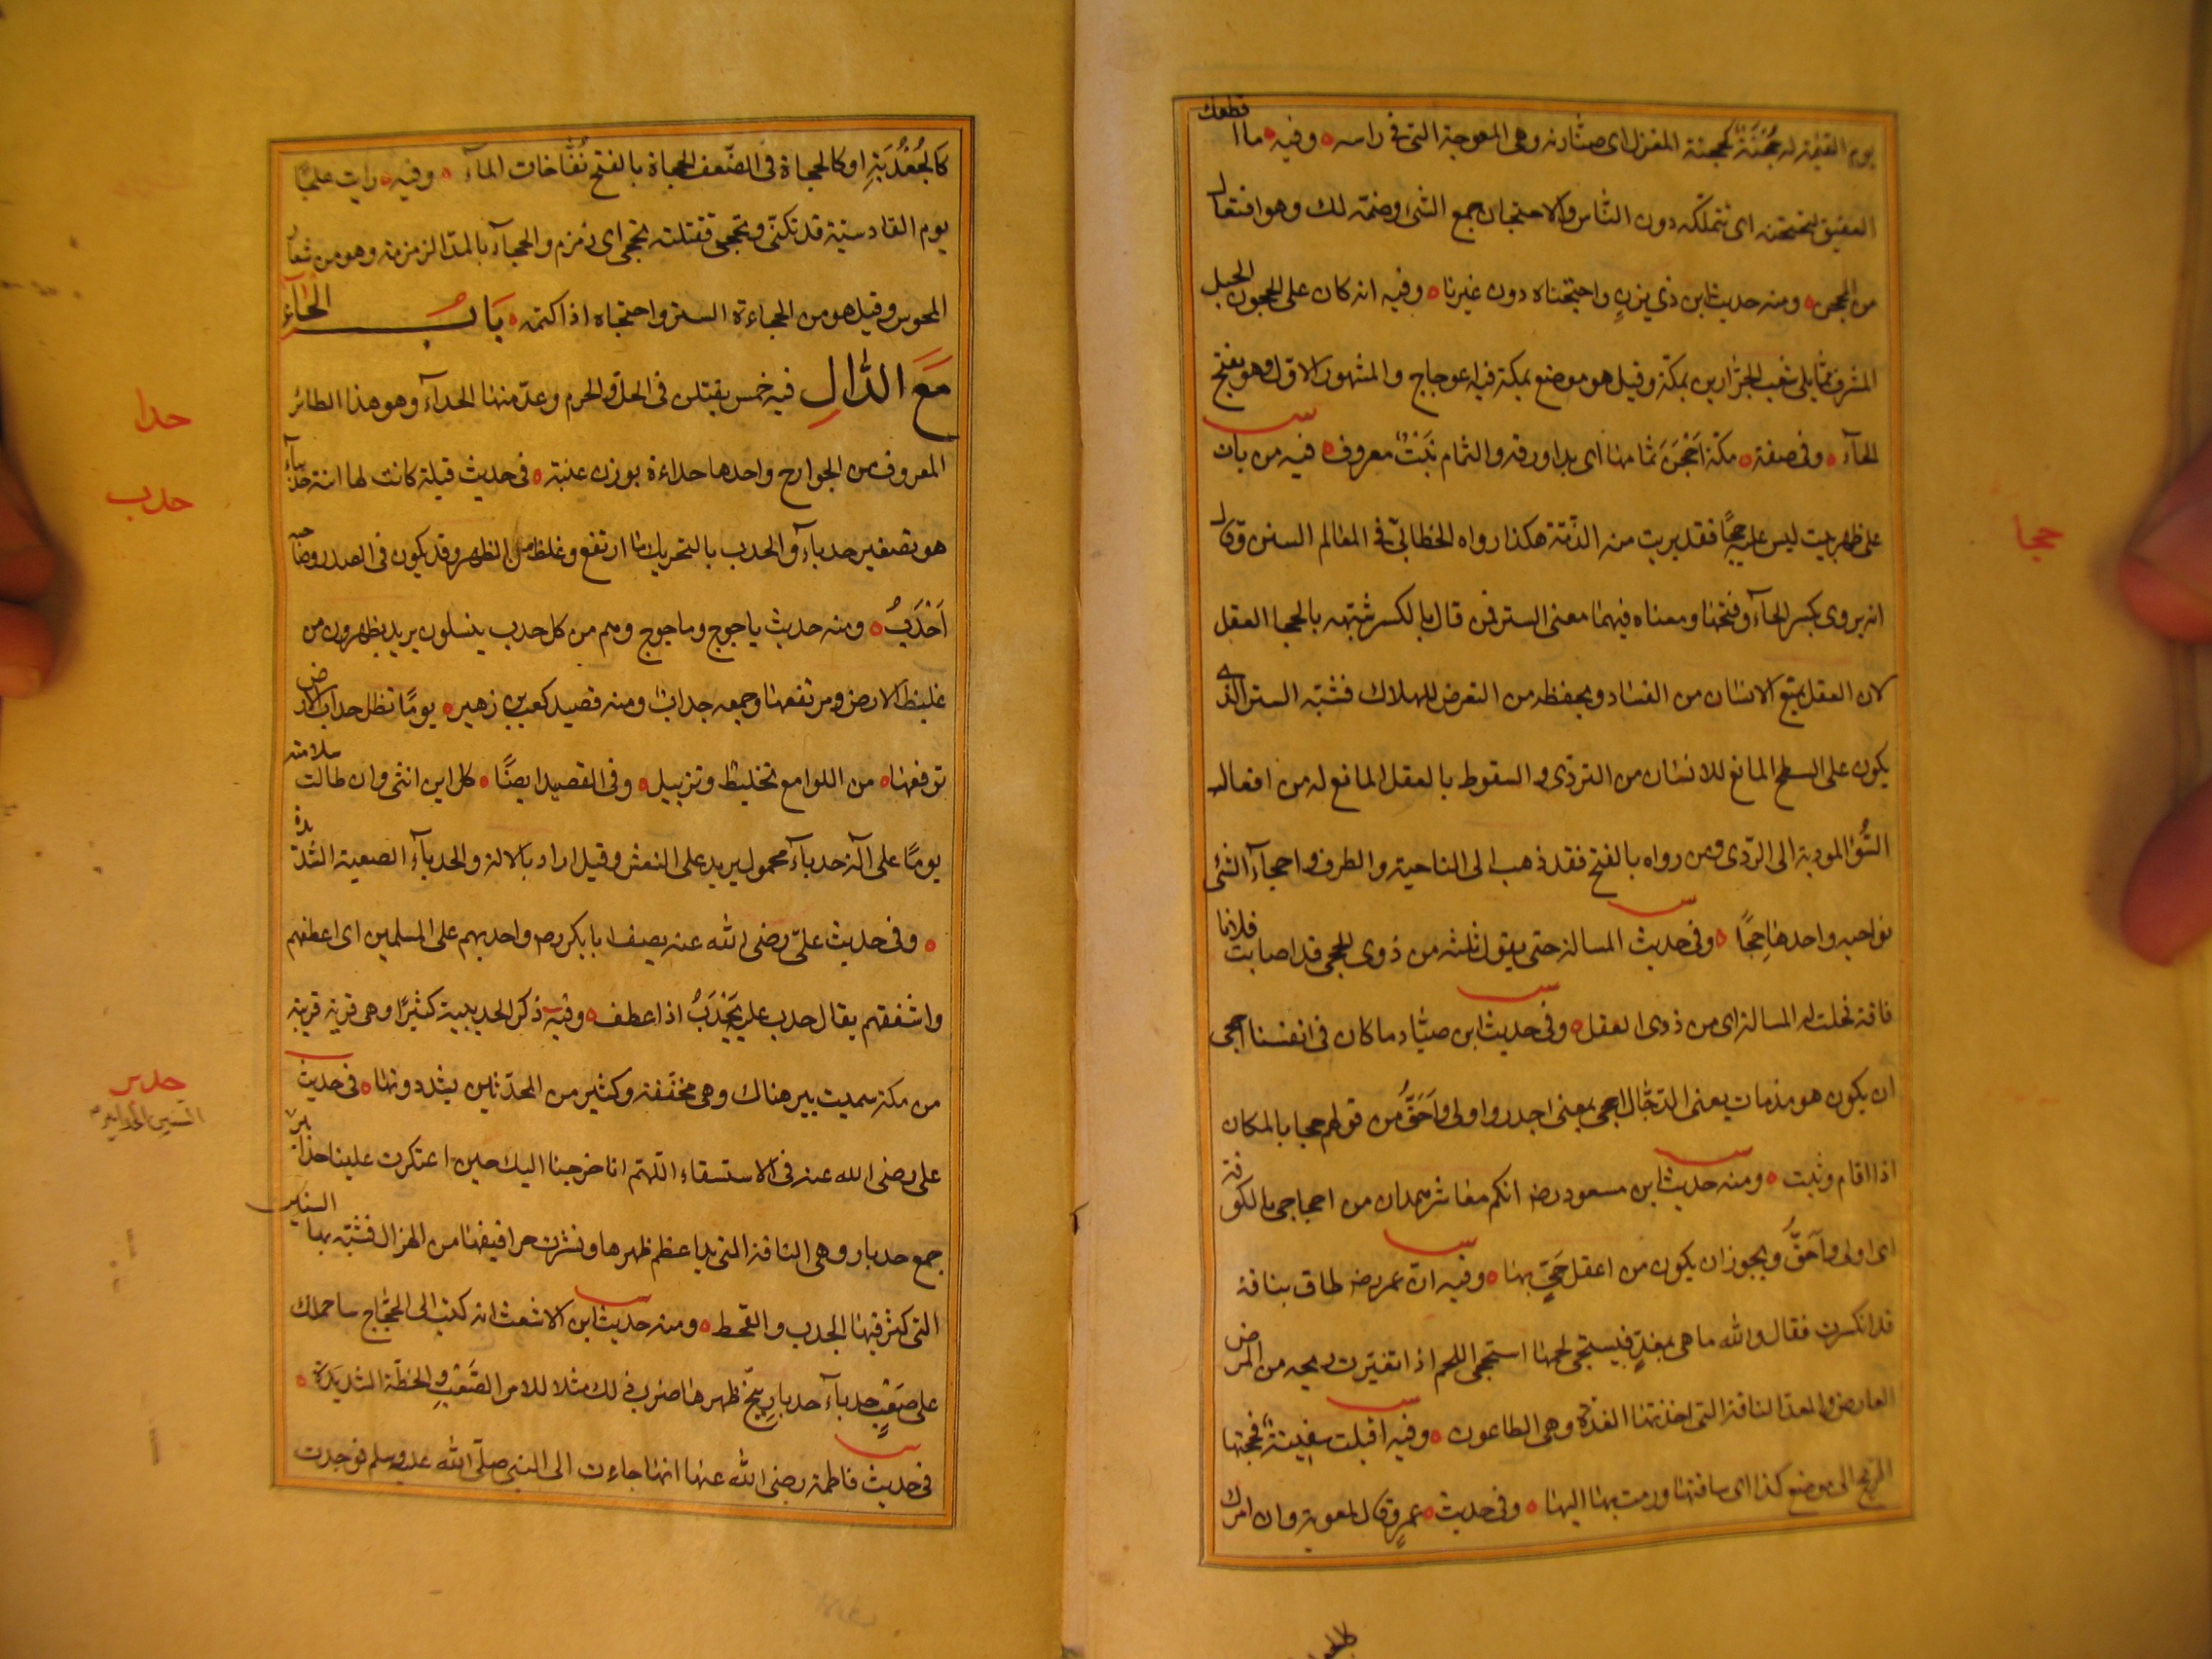 يوم القيمة له حُجْنَةٌ كحجنة المغزل اى صنّارته وهى المعوجة التى فى راسه وفيه ما اقطعك
العقيق لتحتجنه اى تتملكه دون الناس والاحتجان جمع الشئ وضمّه لك وهو افتعال
من الحجن ومنه حديث ابن ذي يزن واحتجناه دون غيرنا وفيه انه كان على الحجون الجبل
المشرف ممّا يلى شعب الجزارين بمكة وقيل هو موضع بمكة فيه اعوجاج والمشهور الاوّل وهو بفتح
الحآء وفى صفة مكة اَحْجَنَ ثمامها اى بدا ورقه والثمام نَبْتٌ معروف فيه من بات
على ظهر بيت ليس عليه حِجًا فقد برئت منه الذّمّة هكذا رواه الخطّابىّ فى المعالم السنن وقال
انه يروى بكسر الحآء وفتحها ومعناه فيهما معنى الستر فمن قال بالكسر شبّهه بالحجا العقل
لان العقل يمنع الانسان من الفساد ويحفظه من التعرض للهلاك فشبّه الستر الذى
يكون على السطح المانع للانسان من التردّى والسقوط بالعقل المانع له من افعال
السُّوْء المودية الى الرّدى ومن رواه بالفتح فقد ذهب الى الناحية والطرف واحجآء الشئ
نواحيه واحدها حِجًا وفى حديث المسالة حتى يقول ثلثة من ذوى الحجى قد اصابت فلانا
فاقة فحلت له المسالة اى من ذوى العقل وفى حديث ابن صيّاد ما كان فى انفسنا احجى
ان يكون هو مذمات يعنى الدجّال احجى بمعنى اجدر واولى واَحَقُّ من قولهم حجا بالمكان
اذا اقام وثبت ومنه حديث ابن مسعود رضه انكم معاشر همدان من احجاحى بالكوفة
اى اولى واَحَقُّ ويجوز ان يكون من اعقل حىّ بها وفيه انّ عمر رضه طاف بناقة
قد انكسرت فقال والله ما هى بمغدّ فيستحجى لحمها استحجى اللحم اذا تغيّرت ريحه من المرض
العارض والمغد الناقة التى اخذتها الغدّة وهى الطاعون وفيه اقبلت سفينةٌ فحجتها
الريح الى موضع كذا اى ساقتها ورمت بها اليها وفى حديث عمرو قال لمعوية وان امرك
حجا
كالجُعْدُبَةِ او كالحجاة فى الضّعف الحجاة بالفتح نُفّاخات المآء وفيه رايت علجًا
يوم القادسيّة قد تكنّى وتحجى فقتلته تحجى اى زمزم والحجآء بالمدّ الزمزمة وهو من شعار
المجوس وقيل هو من الحجاءة الستر واحتجاه اذا كتمه بَابُ الحَآءِ
مَعَ الدَّالِ فيه خمس يقتلن فى الحل والحرم وعدّ منها الحدآء وهو هذا الطائر
المعروف من الجوارح واحدها حداءة بوزن عنبة فى حديث قيلة كانت لها ابنة حديبآء
هو تصغير حدبآء والحدب بالتحريك ما ارتفع وغلظ من الظهر وقد يكون فى الصدر وصاحبه
اَحْدَبُ ومنه حديث ياجوج وماجوج وهم من كل حدب ينسلون يريد يظهرون من
غليظ الارض ومرتفعها وجمعه حدابٌ ومنه قصيد كعب بن زهير يومًا تظل حداب الارض
ترفعها من اللوامع تخليط وتزييل وفى القصيد ايضًا كل ابن انثى وان طالت سلامته
يومًا على آلة حدبآء محمول يريد على النعش وقيل اراد بالالة والحدبآء الصعبة الشديدة
وفى حديث علىّ رضى الله عنه يصف ابا بكر رضه واحدبهم على المسلمين اى اعطفهم
واشفقهم يقال حدب عليه يَحْدَبُ اذا عطف وفيه ذكر الحديبية كثيرًا وهى قرية قريبة
من مكة سميت ببير هناك وهى مخففة وكثير من المحدّثين يشددونها فى حديث
على رضى الله عنه فى الاستسقاء اللهم انا خرجنا اليك حين اعتكرت علينا حدابير السنين
جمع حدبار وهى الناقة التى بدا عظم ظهرها ونشزت حراقيفها من الهزال فشبّه بها
التى كثر فيها الجدب والقحط ومنه حديث ابن الاشعث انه كتب الى الحجّاج ساحملك
على صَعْبٍ حدبآء حدبارٍ ينجّ ظهرها ضرب ذلك مثلا للامر الصَّعْبِ والخطّة الشَديدَة
فى حديث فاطمة رضى الله عنها انها جاءت الى النبى صلّى الله عليه وسلم فوجدت
حدا
حدب
حدبر